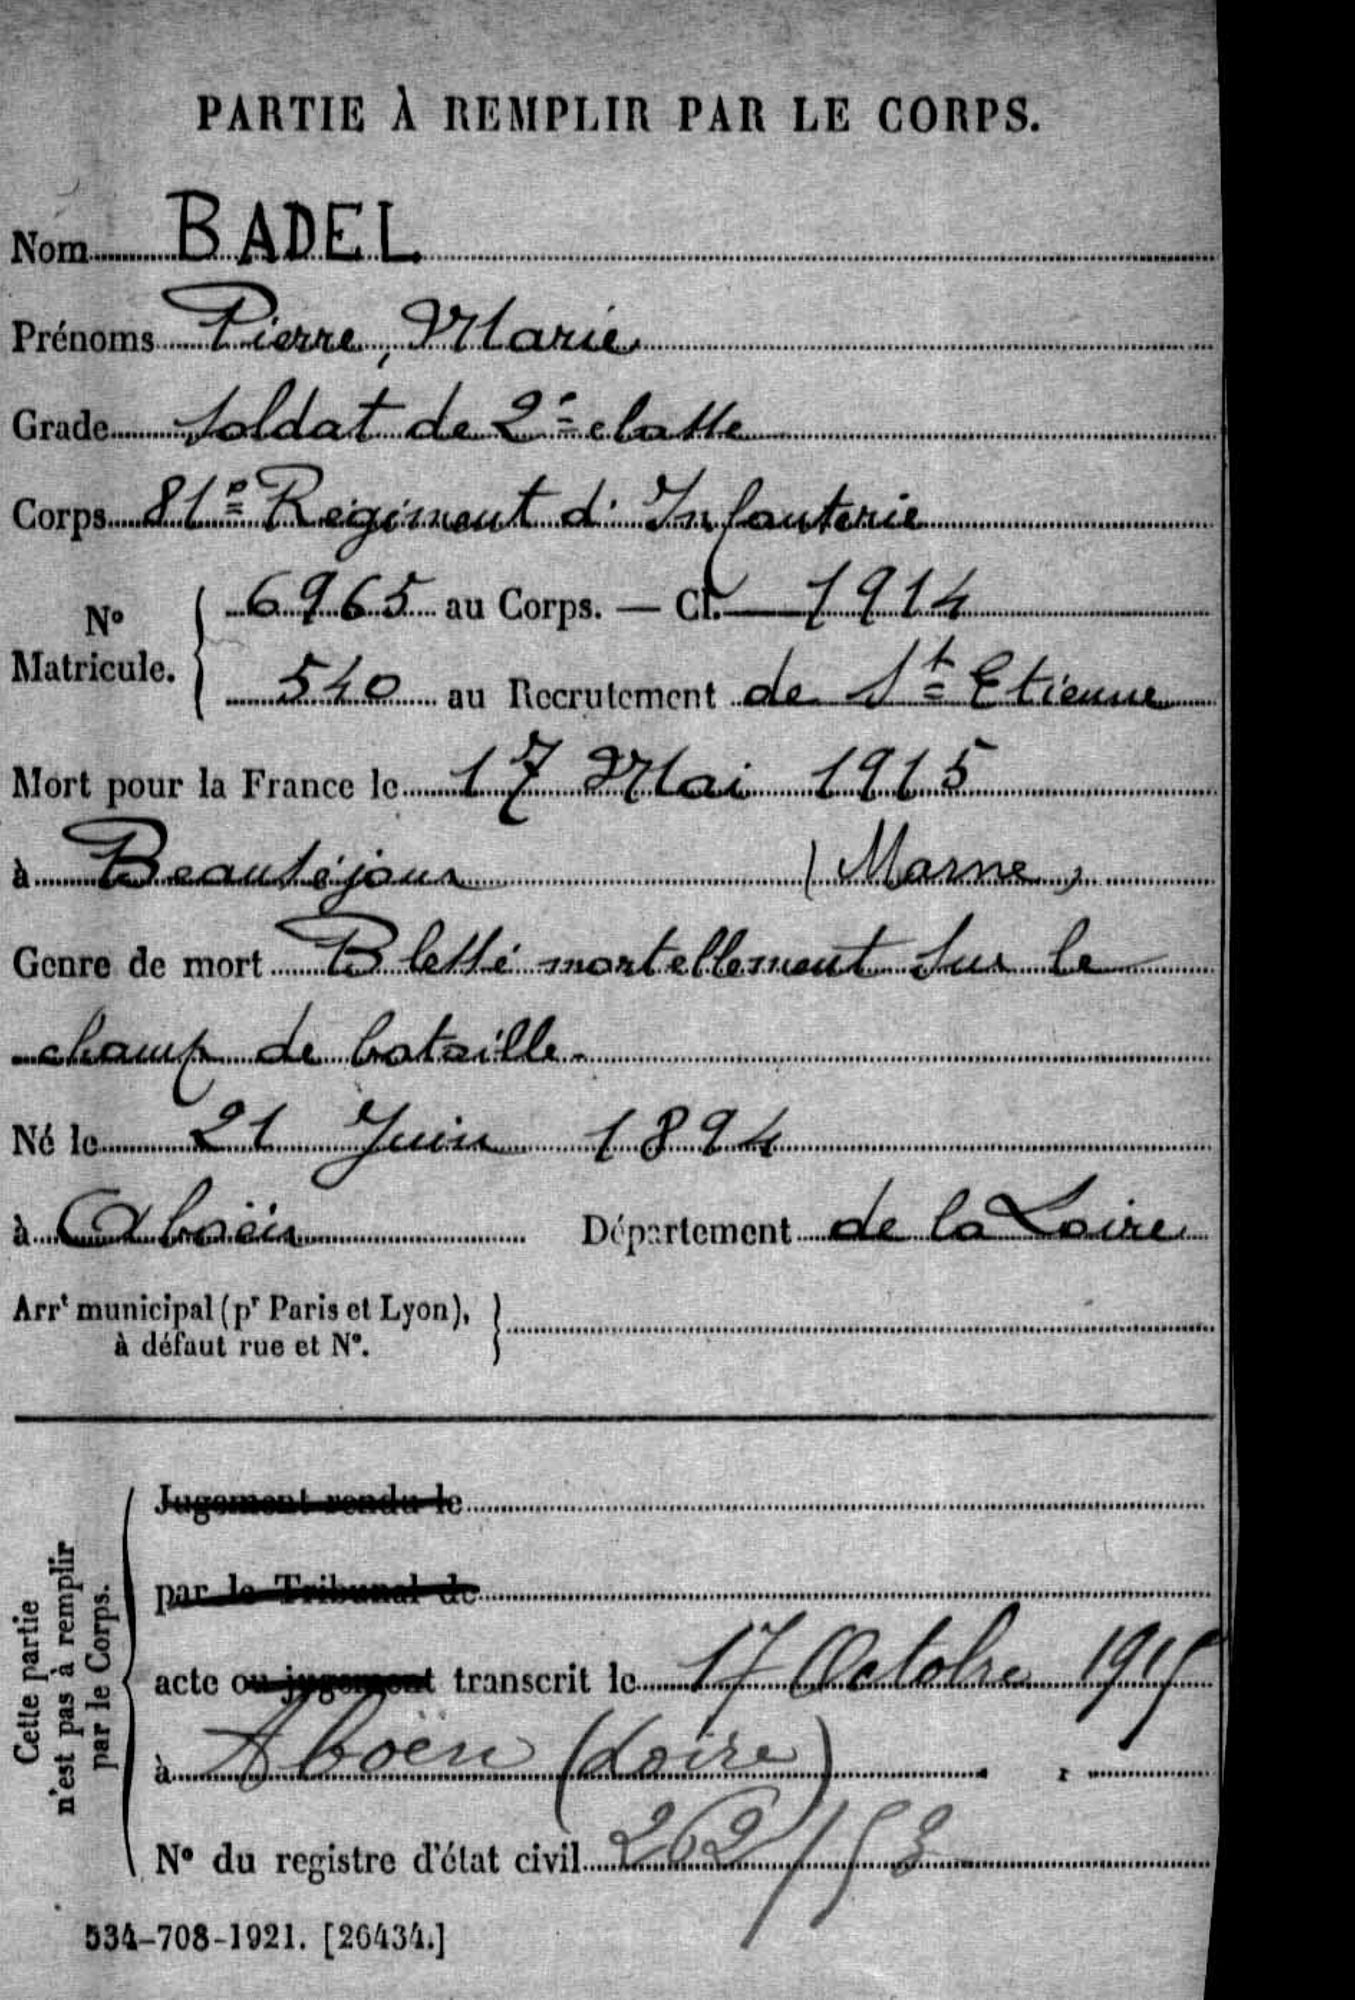 PARTIE À REMPLIR PAR LE CORPS.
Nom BADEL
Prénoms Pierre, Marie
Grade Soldat de 2e classe
Corps 81e Régiment d'Infanterie
N° Matricule. 6965 au Corps. — Cl. 1914
540 au Recrutement de St Etienne
Mort pour la France le 17 Mai 1915
à Beauséjour (Marne)
Genre de mort Blessé mortellement sur le
champ de bataille.
Né le 21 Juin 1894
à Aboën Département de la Loire
Arrt municipal (pr Paris et Lyon),
à défaut rue et N°.
Cette partie
n'est pas à remplir
par le Corps.
Jugement rendu le
par le Tribunal de
acte ou jugement transcrit le 17 Octobre 1915
à Aboën (Loire)
N° du registre d'état civil 262/
534-708-1921. [26434.]